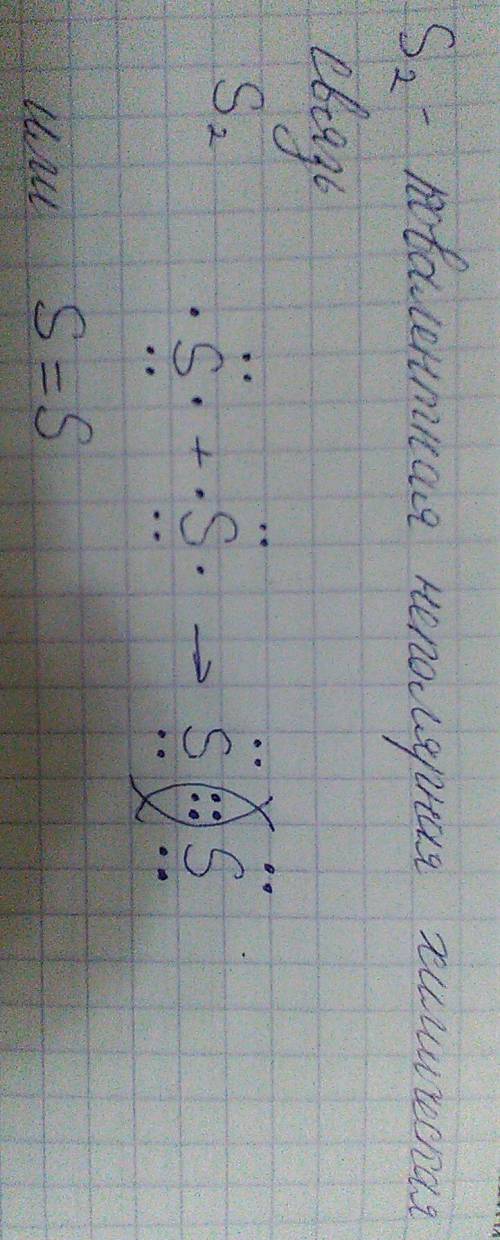 S₂ - ковалентная неполярная химическая
связь
S₂ ·S̈· + ·S̈· → S̈(::)S̈
или S=S